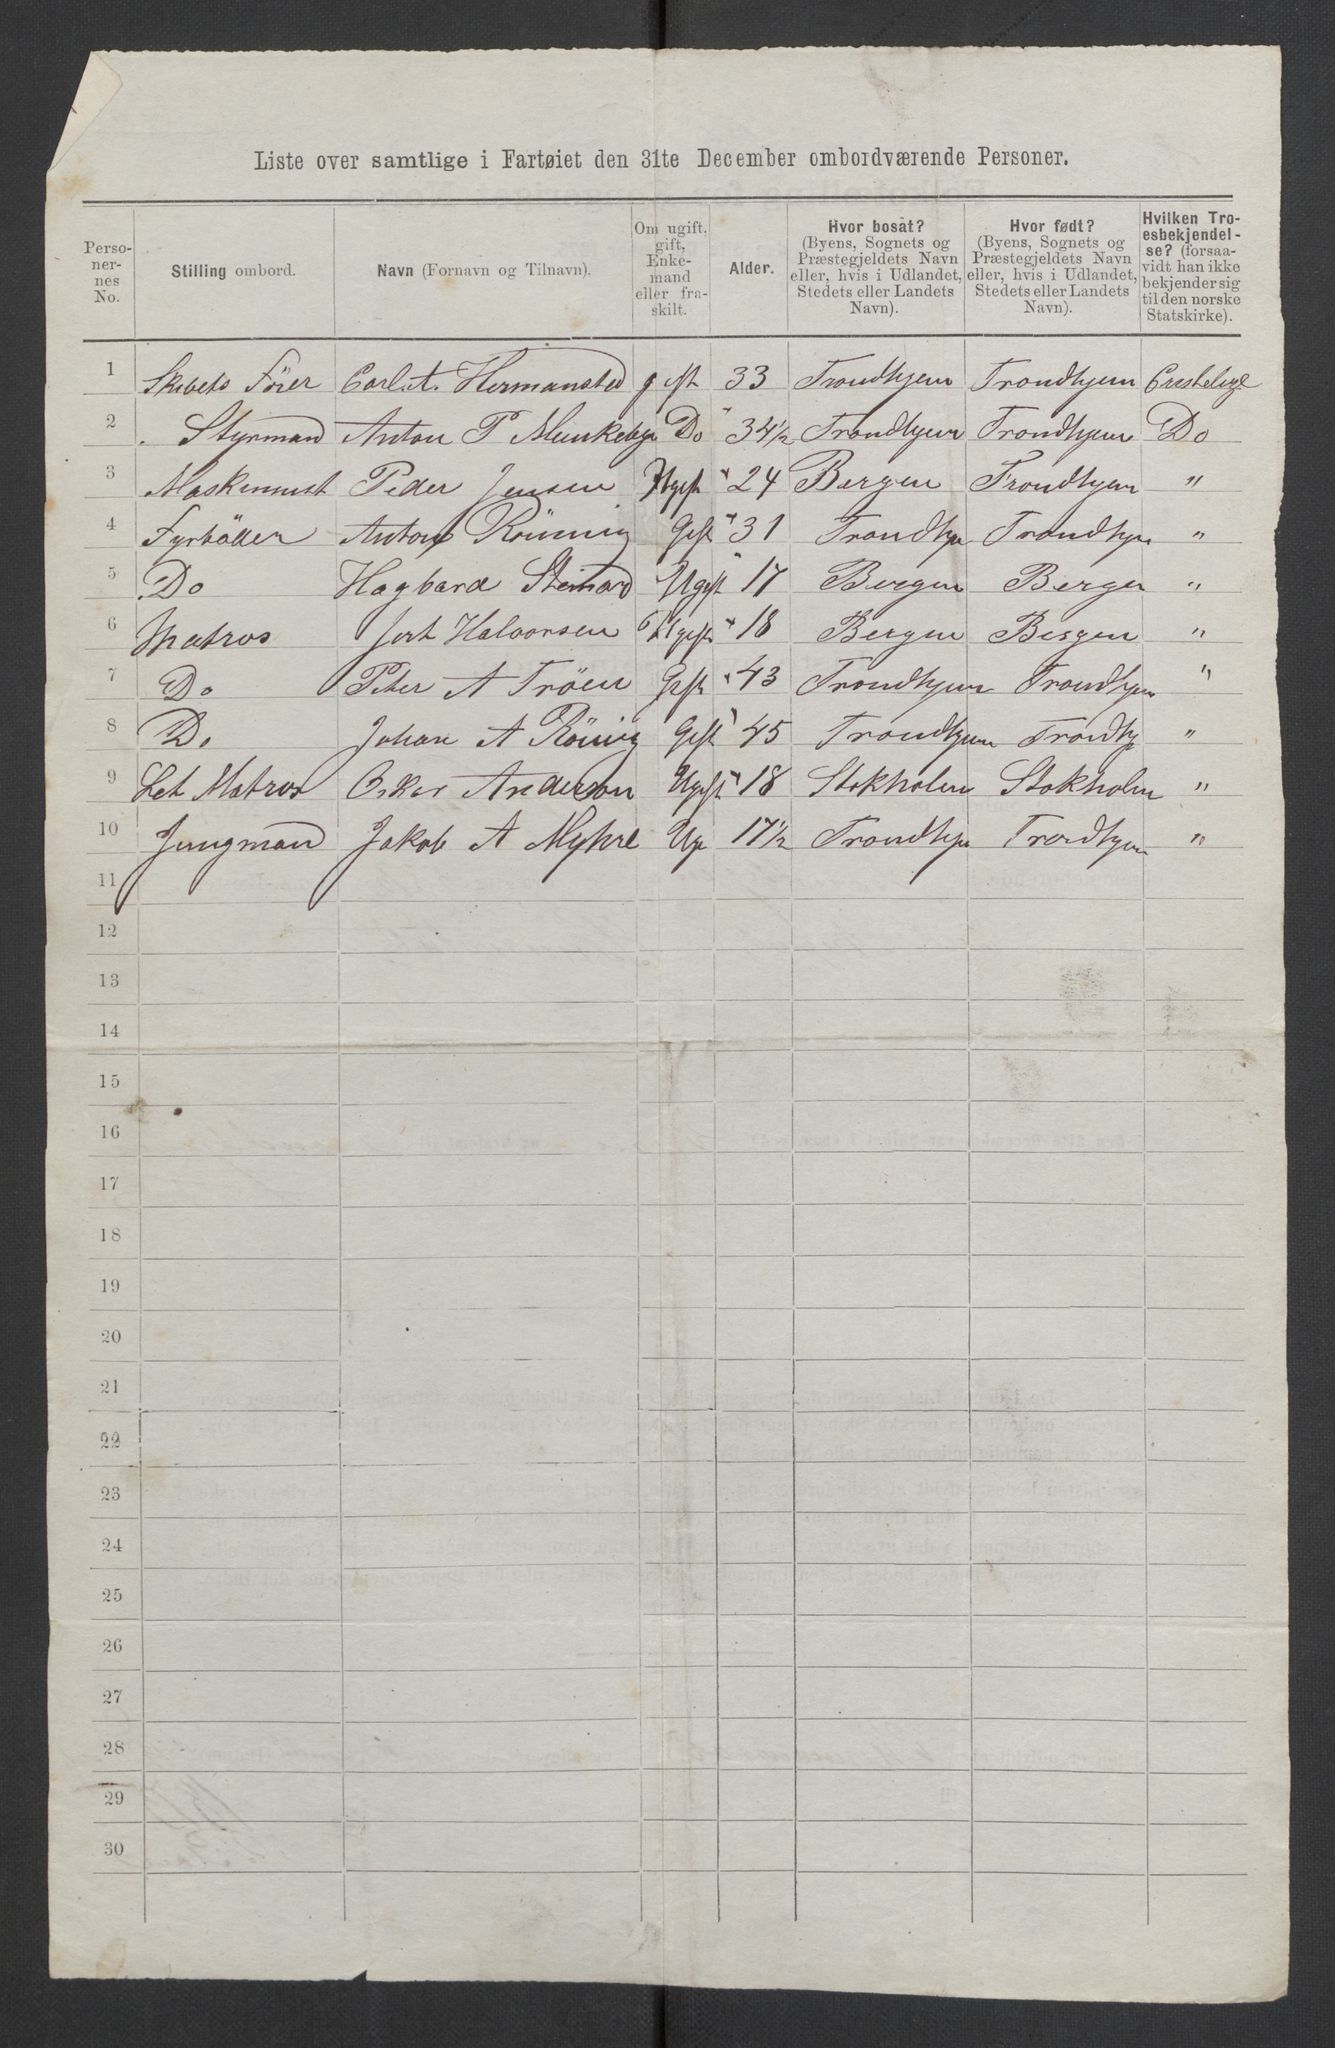 Liste over samtlige i Fartøiet den 31te December ombordværende Personer.
Perso-
ner-
nes
No.
Stilling ombord.
Navn (Fornavn og Tilnavn).
Om ugift,
gift,
Enke-
mand
eller fra-
skilt.
Alder.
Hvor bosat?
(Byens, Sognets og
Præstegjeldets Navn
eller, hvis i Udlandet,
Stedets eller Landets
Navn).
Hvor født?
(Byens, Sognets og
Præstegjeldets Navn
eller, hvis i Udlandet,
Stedets eller Landets
Navn).
Hvilken Tro-
esbekjendel-
se? (forsaa-
vidt han ikke
bekjender sig
til den norske
Statskirke).
1 Skibets Förer Carl. A. Hermansted gift 33 Trondhjem Trondhjem
2 Styrmand Anton P Do 34½ Trondhjem Trondhjem Do
3 Maskinmist Peder Jensen Ugift 24 Bergen Trondhjem "
4 Fyrböder Anton Rönnig Gift 31 Trondhje Trondhje "
5 Do Hagbard Ugift 17 Bergen Bergen "
6 Matros Halvorsen Ugift 18 Bergen Bergen "
7 Do Peter A Tröen Gift 43 Trondhjem Trondhjem "
8 Do Johan A Rönnig Gift 45 Trondhjem Trondhj "
9 Let Matros Osker Anderson Ugift 18 Stokholm Stokholm "
10 Jungmand Jakob A Myhre Ug 17½ Trondhje Trondhjem "
11
12
13
14
15
16
17
18
19
20
21
22
23
24
25
26
27
28
29
30